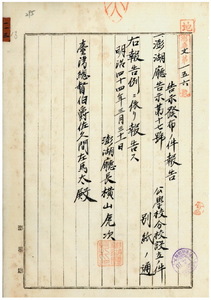 地
文第一五六號
告示發布ノ件報告
一澎湖廳告示第十七號 公學校分校設立ノ件 別紙ノ通
右報告例ニ依リ報告ス
明治四十四年三月三十日
澎湖廳長橫山虎次
臺灣總督伯爵佐久間左馬太殿
澎湖廳